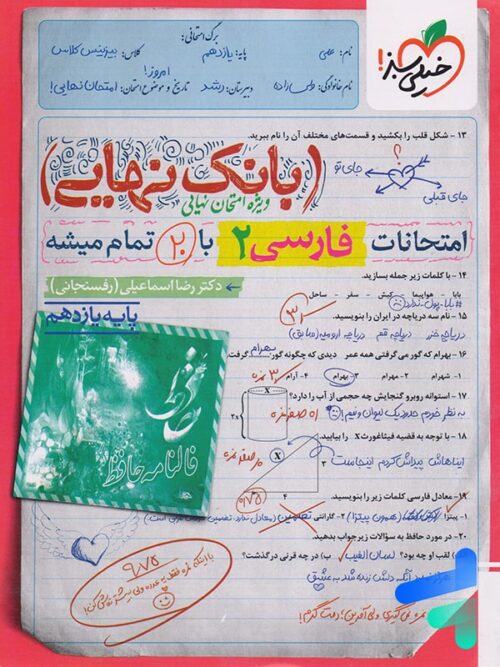 خیلی سبز!
برگ امتحانی:
نام: علی
پایه: یازدهم
کلاس: بیزینس کلاس
نام خانوادگی:
دبیرستان: رشد
تاریخ و موضوع امتحان: امروز! امتحان نهایی!
۱۳- شکل قلب را بکشید و قسمت‌های مختلف آن را نام ببرید.
؟
جای تو
جای قبلی
(بانک نهایی)
ویژه امتحان نهایی
امتحانات فارسی ۲ با ۲۰ تمام میشه
دکتر رضا اسماعیلی (رفسنجانی)
پایه یازدهم
۱۴- با کلمات زیر جمله بسازید.
بابا - هواپیما - کیش - سفر - ساحل
بابا پول نداره
۱۵- نام سه دریاچه در ایران را بنویسید.
دریاچه خزر دریاچه قم دریاچه ارومیه (سابق)
۱۶- بهرام که گور می‌گرفتی همه عمر دیدی که چگونه گور بهرام گرفت.
۱- شهرام ۲- مهرام ۳- بهرام ۴- آرام
۱۷- استوانه روبرو گنجایش چه حجمی از آب را دارد؟
به نظر خودم حدود یک لیوان و نیم!
x
2x
۱۸- با توجه به قضیه فیثاغورث x را بیابید.
ایناهاش پیداش کردم اینجاست
x
۳
۴
فالنامه حافظ
۱۹- معادل فارسی کلمات زیر را بنویسید.
۱- پیتزا ۲- گارانتی
۲۰- در مورد حافظ به سؤالات زیر جواب بدهید.
) لقب او چه بود؟ لسان الغیب ب) در چه قرنی درگذشت؟
هرگز نمیرد آنکه دلش زنده شد به عشق
۹/۷۵